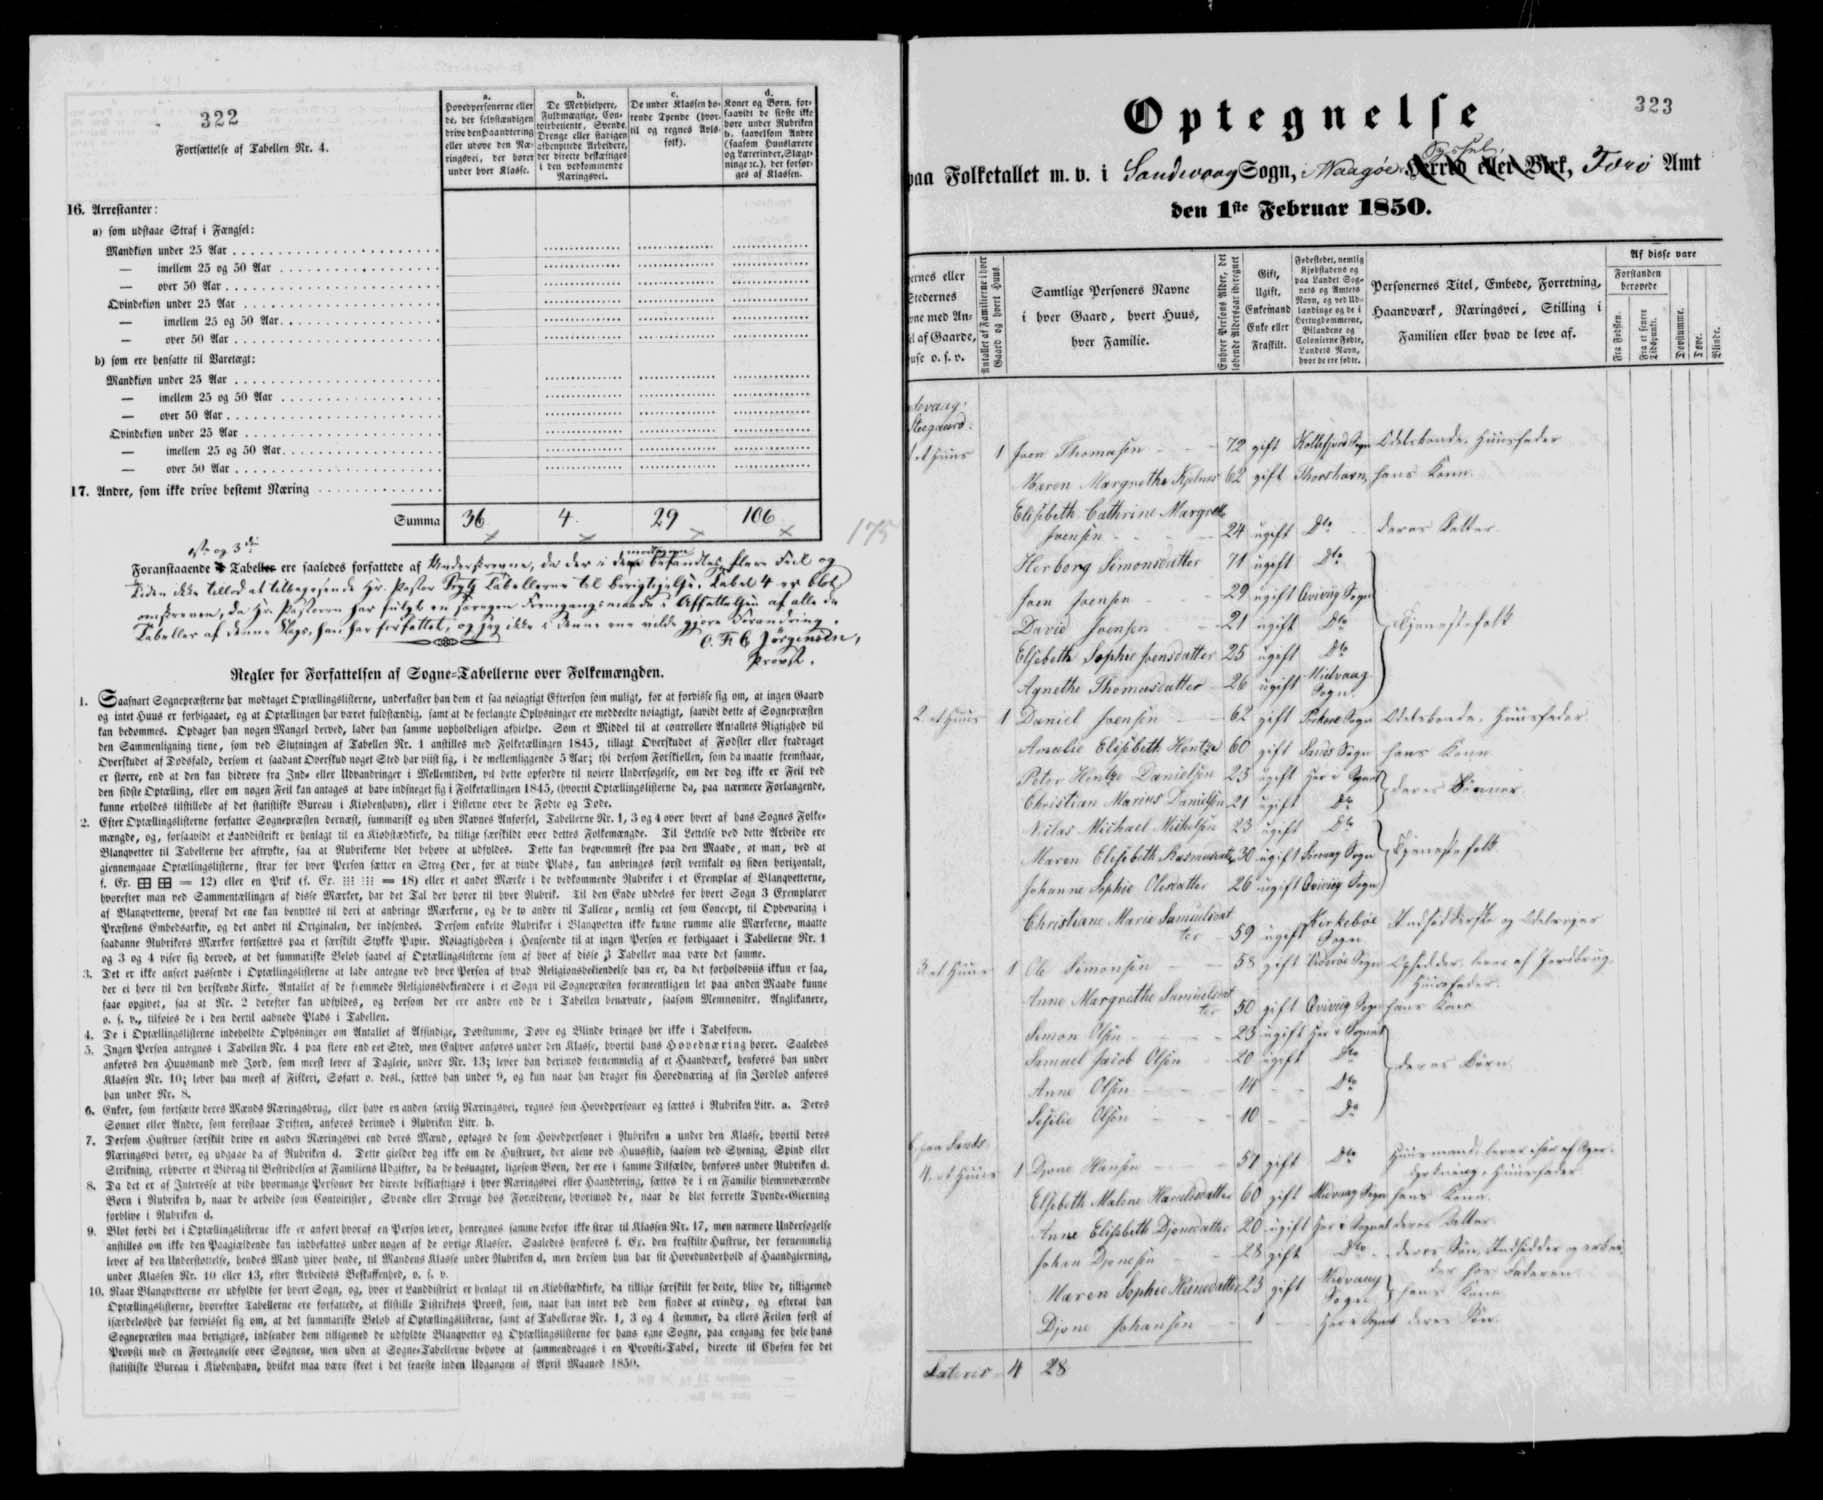 322
Fortsættelse af Tabellen Nr. 4.
a.
Hovedpersonerne eller
de, der selvstændigen
drive den Haandtering
eller udøve den Næ-
ringsvei, der hører
under hver Klasse.
b.
De Medhjelpere,
Fuldmægtige, Con-
toirbetiente, Svende,
Drenge eller stadigen
afbenyttede Arbeidere,
der directe beskæftiges
i den vedkommende
Næringsvei.
c.
De under Klassen ho-
rende Tyende (hvor-
til og regnes Avls-
folk).
d.
Koner og Børn, for-
saavidt de sidste ikke
høre under Rubriken
b. saavelsom Andre
(saasom Huuslærere
og Lærerinder, Slægt-
ninge rc.), der forsør-
ges af Klassen.
16. Arrestanter:
a) som udstaae Straf i Fængsel:
Mandkiøn under 25 Aar
— imellem 25 og 50 Aar
— over 50 Aar
Qvindekiøn under 25 Aar
— imellem 25 og 50 Aar
— over 50 Aar
b) som ere hensatte til Varetægt:
Mandkiøn under 25 Aar
— imellem 25 og 50 Aar
— over 50 Aar
Qvindekiøn under 25 Aar
— imellem 25 og 50 Aar
— over 50 Aar
17. Andre, som ikke drive bestemt Næring
Summa 36 4 29 106
175
Foranstaaende Tabeller ere saaledes forfattede af Underskrevne, da der i dem befandtes flere Feil og
Tiden ikke tillod at tilbagesende Hr. Pastor Tabellerne til Berigtigelse. Tabel 4 er blot
omskreven, da Hr. Pastoren har fulgt en Fremgangsmaade i Affattelsen af alle de
Tabeller af denne Slags, han har forfattet, og jeg ikke i denne ene vilde gjøre Forandring.
Jørgensen,
Provst.
Regler for Forfattelsen af Sogne-Tabellerne over Folkemængden.
1. Saasnart Sognepræsterne har modtaget Optællingslisterne, underkaster han dem et saa nøiagtigt Eftersyn som muligt, for at forvisse sig om, at ingen Gaard
og intet Huus er forbigaaet, og at Optællingen har været fuldstændig, samt at de forlangte Oplysninger ere meddeelte nøiagtigt, saavidt dette af Sognepræsten
kan bedømmes. Opdager han nogen Mangel derved, lader han samme uopholdeligen afhielpe. Som et Middel til at controllere Antallets Rigtighed vil
den Sammenligning tiene, som ved Slutningen af Tabellen Nr. 1 anstilles med Folketællingen 1845, tillagt Overskudet af Fødsler eller fradraget
Overskudet af Dødsfald, dersom et saadant Overskud noget Sted har viist sig, i de mellemliggende 5 Aar; thi dersom Forskiellen, som da maatte fremstaae,
er større, end at den kan hidrøre fra Ind- eller Udvandringer i Mellemtiden, vil dette opfordre til nøiere Undersøgelse, om der dog ikke er Feil ved
den sidste Optælling, eller om nogen Feil kan antages at have indsneget sig i Folketællingen 1845, (hvortil Optællingslisterne da, paa nærmere Forlangende,
kunne erholdes tilstillede af det statistiske Bureau i Kiøbenhavn), eller i Listerne over de Fødte og Døde.
2. Efter Optællingslisterne forfatter Sognepræsten dernæst, summarisk og uden Navnes Anførsel, Tabellerne Nr. 1, 3 og 4 over hvert af hans Sognes Folke-
mængde, og, forsaavidt et Landdistrikt er henlagt til en Kiøbstædkirke, da tillige særskildt over dettes Folkemængde. Til Lettelse ved dette Arbeide ere
Blanqvetter til Tabellerne her aftrykte, saa at Rubrikerne blot behøve at udfyldes. Dette kan beqvemmest skee paa den Maade, at man, ved at
giennemgaae Optællingslisterne, strax for hver Person sætter en Streg (der, for at vinde Plads, kan anbringes først vertikalt og siden horizontalt,
f. Ex. ⊞ ⊞ = 12) eller en Prik (f. Ex. ⁝⁝⁝ ⁝⁝⁝ = 18) eller et andet Mærke i de vedkommende Rubriker i et Exemplar af Blanqvetterne,
hvorefter man ved Sammentællingen af disse Mærker, har det Tal der hører til hver Rubrik. Til den Ende uddeles for hvert Sogn 3 Exemplarer
af Blanqvetterne, hvoraf det ene kan benyttes til deri at anbringe Mærkerne, og de to andre til Tallene, nemlig eet som Concept, til Opbevaring i
Præstens Embedsarkiv, og det andet til Originalen, der indsendes. Dersom enkelte Rubriker i Blanqvetten ikke kunne rumme alle Mærkerne, maatte
saadanne Rubrikers Mærker fortsættes paa et særskilt Stykke Papir. Nøiagtigheden i Henseende til at ingen Person er forbigaaet i Tabellerne Nr. 1
og 3 og 4 viser sig derved, at det summariske Beløb saavel af Optællingslisterne som af hver af disse 3 Tabeller maa være det samme.
3. Det er ikke anseet passende i Optællingslisterne at lade antegne ved hver Person af hvad Religionsbekiendelse han er, da det forholdsviis ikkun er faa,
der ei høre til den herskende Kirke. Antallet af de fremmede Religionsbekiendere i et Sogn vil Sognepræsten formeentligen let paa anden Maade kunne
faae opgivet, saa at Nr. 2 derefter kan udfyldes, og dersom der ere andre end de i Tabellen benævnte, saasom Memnoniter, Anglikanere,
o. s. v., tilføies de i den dertil aabnede Plads i Tabellen.
4. De i Optællingslisterne indeholdte Oplysninger om Antallet af Afsindige, Døvstumme, Døve og Blinde bringes her ikke i Tabelform.
5. Ingen Person antegnes i Tabellen Nr. 4 paa flere end eet Sted, men Enhver anføres under den Klasse, hvortil hans Hovednæring hører. Saaledes
anføres den Huusmand med Jord, som meest lever af Dagleie, under Nr. 13; lever han derimod fornemmelig af et Haandværk, henføres han under
Klassen Nr. 10; lever han meest af Fiskeri, Søfart o. desl., sættes han under 9, og kun naar han drager sin Hovednæring af sin Jordlod anføres
han under Nr. 8.
6. Enker, som fortsætte deres Mænds Næringsbrug, eller have en anden særlig Næringsvei, regnes som Hovedpersoner og sættes i Rubriken Litr. a. Deres
Sønner eller Andre, som forestaae Driften, anføres derimod i Rubriken Litr. b.
7. Dersom Hustruer særskilt drive en anden Næringsvei end deres Mænd, optages de som Hovedpersoner i Rubriken a under den Klasse, hvortil deres
Næringsvei hører, og udgaae da af Rubriken d. Dette gielder dog ikke om de Hustruer, der alene ved Huusflid, saasom ved Syening, Spind eller
Strikning, erhverve et Bidrag til Bestridelsen af Familiens Udgifter, da de desuagtet, ligesom Børn, der ere i samme Tilfælde, henføres under Rubriken d.
8. Da det er af Interesse at vide hvormange Personer der directe beskiæftiges i hver Næringsvei eller Haandtering, sættes de i en Familie hiemmeværende
Børn i Rubriken b, naar de arbeide som Contoirister, Svende eller Drenge hos Forældrene, hvorimod de, naar de blot forrette Tyende-Gierning
forblive i Rubriken d.
9. Blot fordi det i Optællingslisterne ikke er anført hvoraf en Person lever, henregnes samme derfor ikke strax til Klassen Nr. 17, men nærmere Undersøgelse
anstilles om ikke den Paagiældende kan indbefattes under nogen af de øvrige Klasser. Saaledes henføres f. Ex. den fraskilte Hustrue, der fornemmelig
lever af den Understøttelse, hendes Mand giver hende, til Mandens Klasse under Rubriken d, men dersom hun har sit Hovedunderhold af Haandgierning,
under Klassen Nr. 10 eller 13, efter Arbeidets Beskaffenhed, o. s. v.
10. Naar Blanqvetterne ere udfyldte for hvert Sogn, og, hvor et Landdistrict er henlagt til en Kiøbstædkirke, da tillige særskilt for dette, blive de, tilligemed
Optællingslisterne, hvorefter Tabellerne ere forfattede, at tilstille Distriktets Provst, som, naar han intet ved dem finder at erindre, og efterat han
isærdeleshed har forvisset sig om, at det summariske Beløb af Optællingslisterne, samt af Tabellerne Nr. 1, 3 og 4 stemmer, da ellers Feilen først af
Sognepræsten maa berigtiges, indsender dem tilligemed de udfyldte Blanqvetter og Optællingslisterne for hans egne Sogne, paa eengang for hele hans
Provsti med en Fortegnelse over Sognene, men uden at Sogne-Tabellerne behøve at sammendrages i en Provsti-Tabel, directe til Chefen for det
statistiske Bureau i Kiøbenhavn, hvilket maa være skeet i det seneste inden Udgangen af April Maaned 1850.
323
Optegnelse
paa Folketallet m. v. i Sandevaag Sogn, Waagøe Syssel, Herred eller Birk, Færø Amt
den 1ste Februar 1850.
ernes eller
Stedernes
vne med An-
el af Gaarde,
use o. s. v.
Antallet af Familierne i hver
Gaard og hvert Huus.
Samtlige Personers Navne
i hver Gaard, hvert Huus,
hver Familie.
Enhver Persons Alder, det
løbende Aldersaar iberegnet
Gift,
Ugift,
Enkemand
Enke eller
Fraskilt.
Fødestedet, nemlig
Kjøbstadens og
paa Landet Sog-
nets og Amtets
Navn, og ved Ud-
landinge og de i
Hertugdømmerne,
Bilandene og
Colonierne Fødte,
Landets Navn,
hvor de ere fødte.
Personernes Titel, Embede, Forretning,
Haandværk, Næringsvei, Stilling i
Familien eller hvad de leve af.
Af disse vare
Forstanden
berøvede
Fra Fødslen.
Fra et senere
Tidspunkt.
Døvstumme.
Døve.
Blinde.
1 et Huus 1 Joen Thomasen 72 gift Kollefjord Sogn Odelsbonde, Huusfader
Maren Margrethe 62 gift Thorshavn, hans Kone.
Elisebeth Cathrine Margrete
Joensen 24 ugift Dto deres Datter
Herborg Simonsdatter 71 ugift Dto
Joen Joensen 29 ugift Qvivig Sogn
David Joensen 21 ugift Dto Tjenestefolk
Elsebeth Sophie Joensdatter 25 ugift Dto
Agnethe Thomasdatter 26 ugift Midvaag
Sogn
2. et Huus 1 Daniel Joensen 62 gift Sogn Odelsbonde, Huusfader
Amalie Elisebeth Hentze 60 gift Sands Sogn hans Kone
Peter Hentze Danielsen 23 ugift Her i Sognet deres Sønner
Christian Marius Danielsen 21 ugift Dto
Niclas Michael Michelsen 23 ugift Dto
Maren Elisebeth Rasmusdatter 30 ugift Sogn Tjenestefolk
Johanne Sophie Olesdatter 26 ugift Qvivig Sogn
Christiane Marie Samuelsdat
ter 59 ugift Kirkebøe
Sogn
3. et Huus 1 Ole Simonsen 58 gift Viderøe Sogn lever af Jordbrug,
Huusfader.
Anne Margrethe Samuelsdat
ter 50 gift Qvivig Sogn hans Kone
Simon Olsen 23 ugift Her i Sognet
Samuel Jacob Olsen 20 ugift Dto deres Børn
Anne Olsen 14 Dto
Olsen 10 Do
paa Sande
4. et Huus 1 Djone Hansen 51 gift Dto Huusmand, lever især af Ager-
dyrkning, Huusfader
Elsebeth Malene 60 gift Midvaag Sogn hans Kone.
Anne Elisebeth Djonesdatter 20 ugift Her i Sognet deres Datter
Johan Djonesen 28 gift Dto deres Søn, Indsidder og arbei
der hos Faderen
Maren Sophie 23 gift Midvaag
Sogn hans Kone
Djone Johansen 1 Her i Sognet deres Søn.
Lateris 4 28